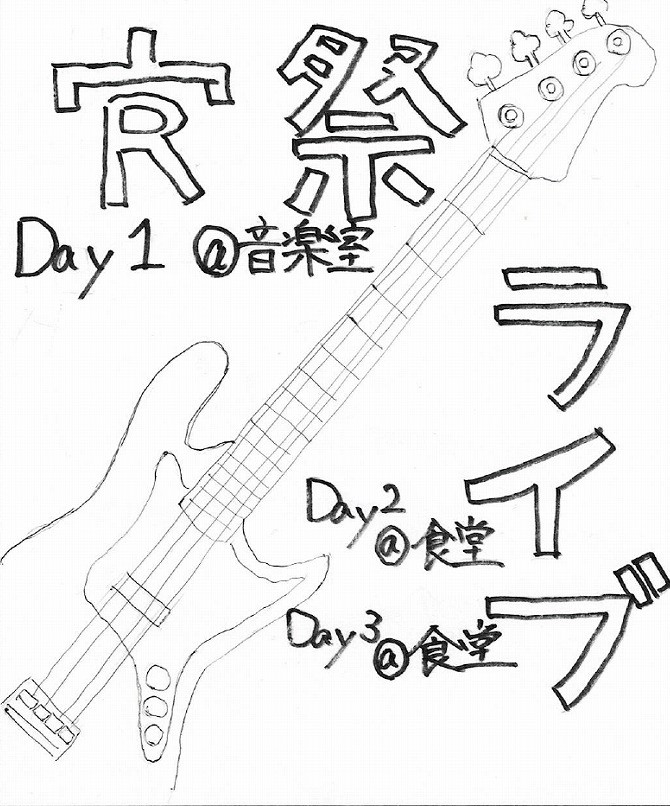 宀R祭
Day1 @音楽室
ライブ
Day2
@食堂
Day3
@食堂